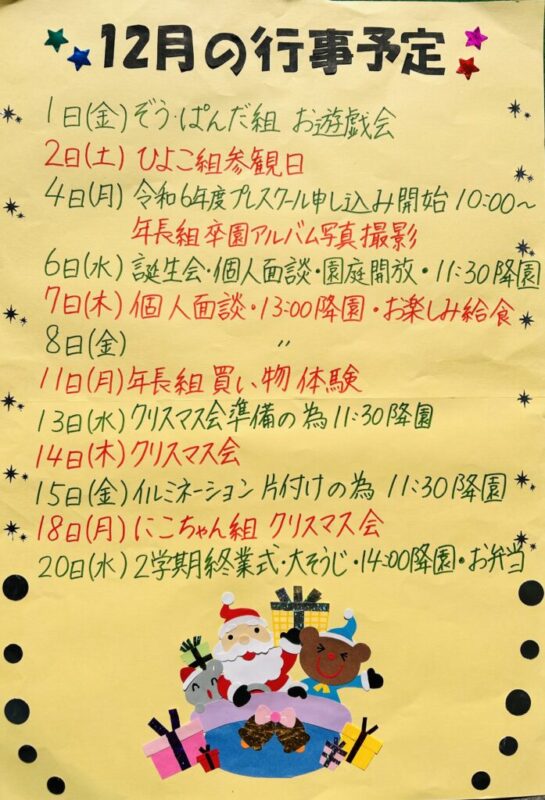 12月の行事予定
1日(金)ぞう・ぱんだ組 お遊戯会
2日(土)ひよこ組参観日
4日(月)令和6年度プレスクール申し込み開始 10:00〜
年長組卒園アルバム写真撮影
6日(水)誕生会・個人面談・園庭開放・11:30降園
7日(木)個人面談・13:00降園・お楽しみ給食
8日(金) 〃
11日(月)年長組買い物体験
13日(水)クリスマス会準備の為11:30降園
14日(木)クリスマス会
15日(金)イルミネーション片付けの為 11:30降園
18日(月)にこちゃん組 クリスマス会
20日(水)2学期終業式・大そうじ・14:00降園・お弁当